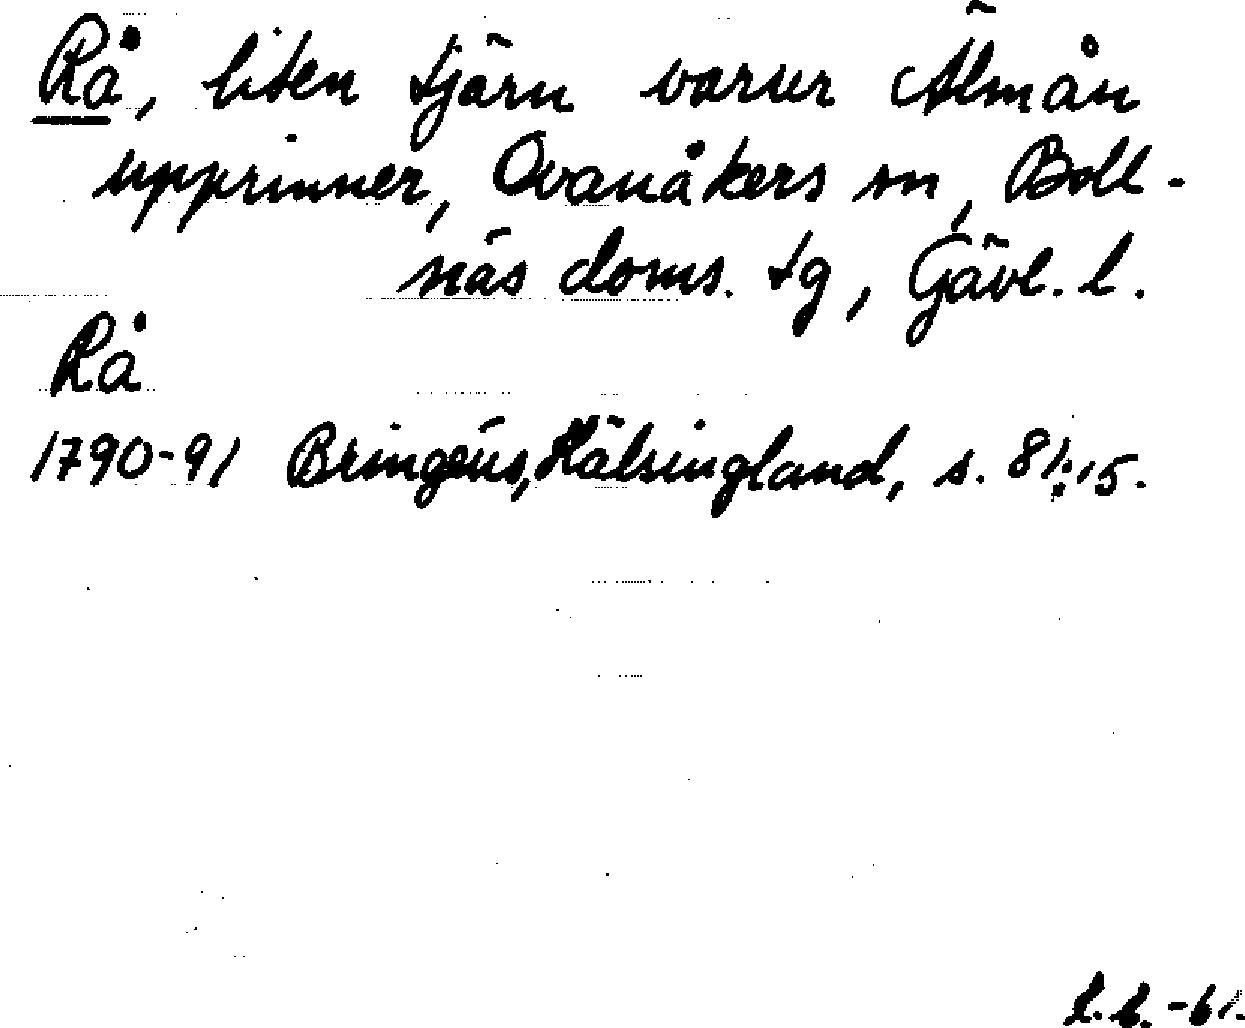 Rå, liten tjärn varur Älmån
upprinner, Ovanåkers sn, Boll-
näs doms. tg, Gävl. l.
Rå
1790-91 Bringéus, Hälsingland, s. 81:15.
L.L. -61.